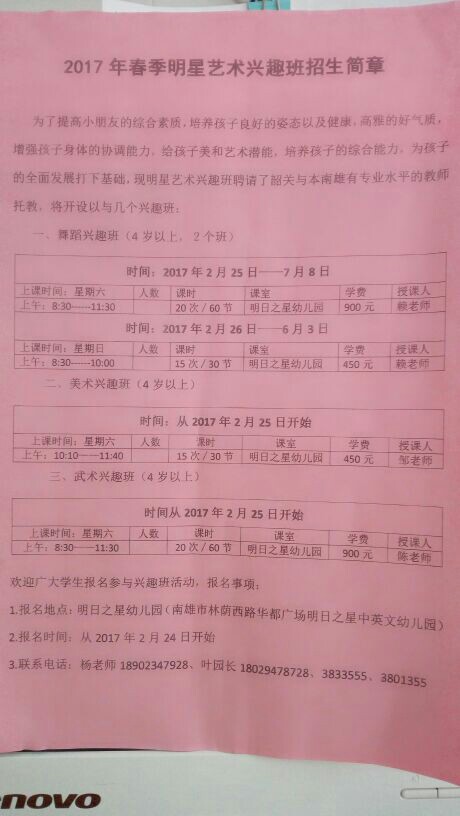 2017 年春季明星艺术兴趣班招生简章
为了提高小朋友的综合素质,培养孩子良好的姿态以及健康,高雅的好气质,
增强孩子身体的协调能力,给孩子美和艺术潜能,培养孩子的综合能力,为孩子
的全面发展打下基础,现明星艺术兴趣班聘请了韶关与本南雄有专业水平的教师
托教,将开设以与几个兴趣班:
一、舞蹈兴趣班(4 岁以上,2 个班)
时间:2017 年 2 月 25 日——7 月 8 日
上课时间:星期六 人数 课时 课室 学费 授课人
上午:8:30------11:30 20 次 / 60 节 明日之星幼儿园 900 元 赖老师
时间:2017 年 2 月 26 日——6 月 3 日
上课时间:星期日 人数 课时 课室 学费 授课人
上午:8:30------10:00 15 次 / 30 节 明日之星幼儿园 450 元 赖老师
二、美术兴趣班(4 岁以上)
时间:从 2017 年 2 月 25 日开始
上课时间:星期六 人数 课时 课室 学费 授课人
上午:10:10——11:40 15 次 / 30 节 明日之星幼儿园 450 元 邹老师
三、武术兴趣班(4 岁以上)
时间从 2017 年 2 月 25 日开始
上课时间:星期六 人数 课时 课室 学费 授课人
上午:8:30——11:30 20 次 / 60 节 明日之星幼儿园 900 元 陈老师
欢迎广大学生报名参与兴趣班活动,报名事项:
1.报名地点:明日之星幼儿园(南雄市林荫西路华都广场明日之星中英文幼儿园)
2.报名时间:从 2017 年 2 月 24 日开始
3.联系电话:杨老师 18902347928、叶园长 18029478728、3833555、3801355
novo